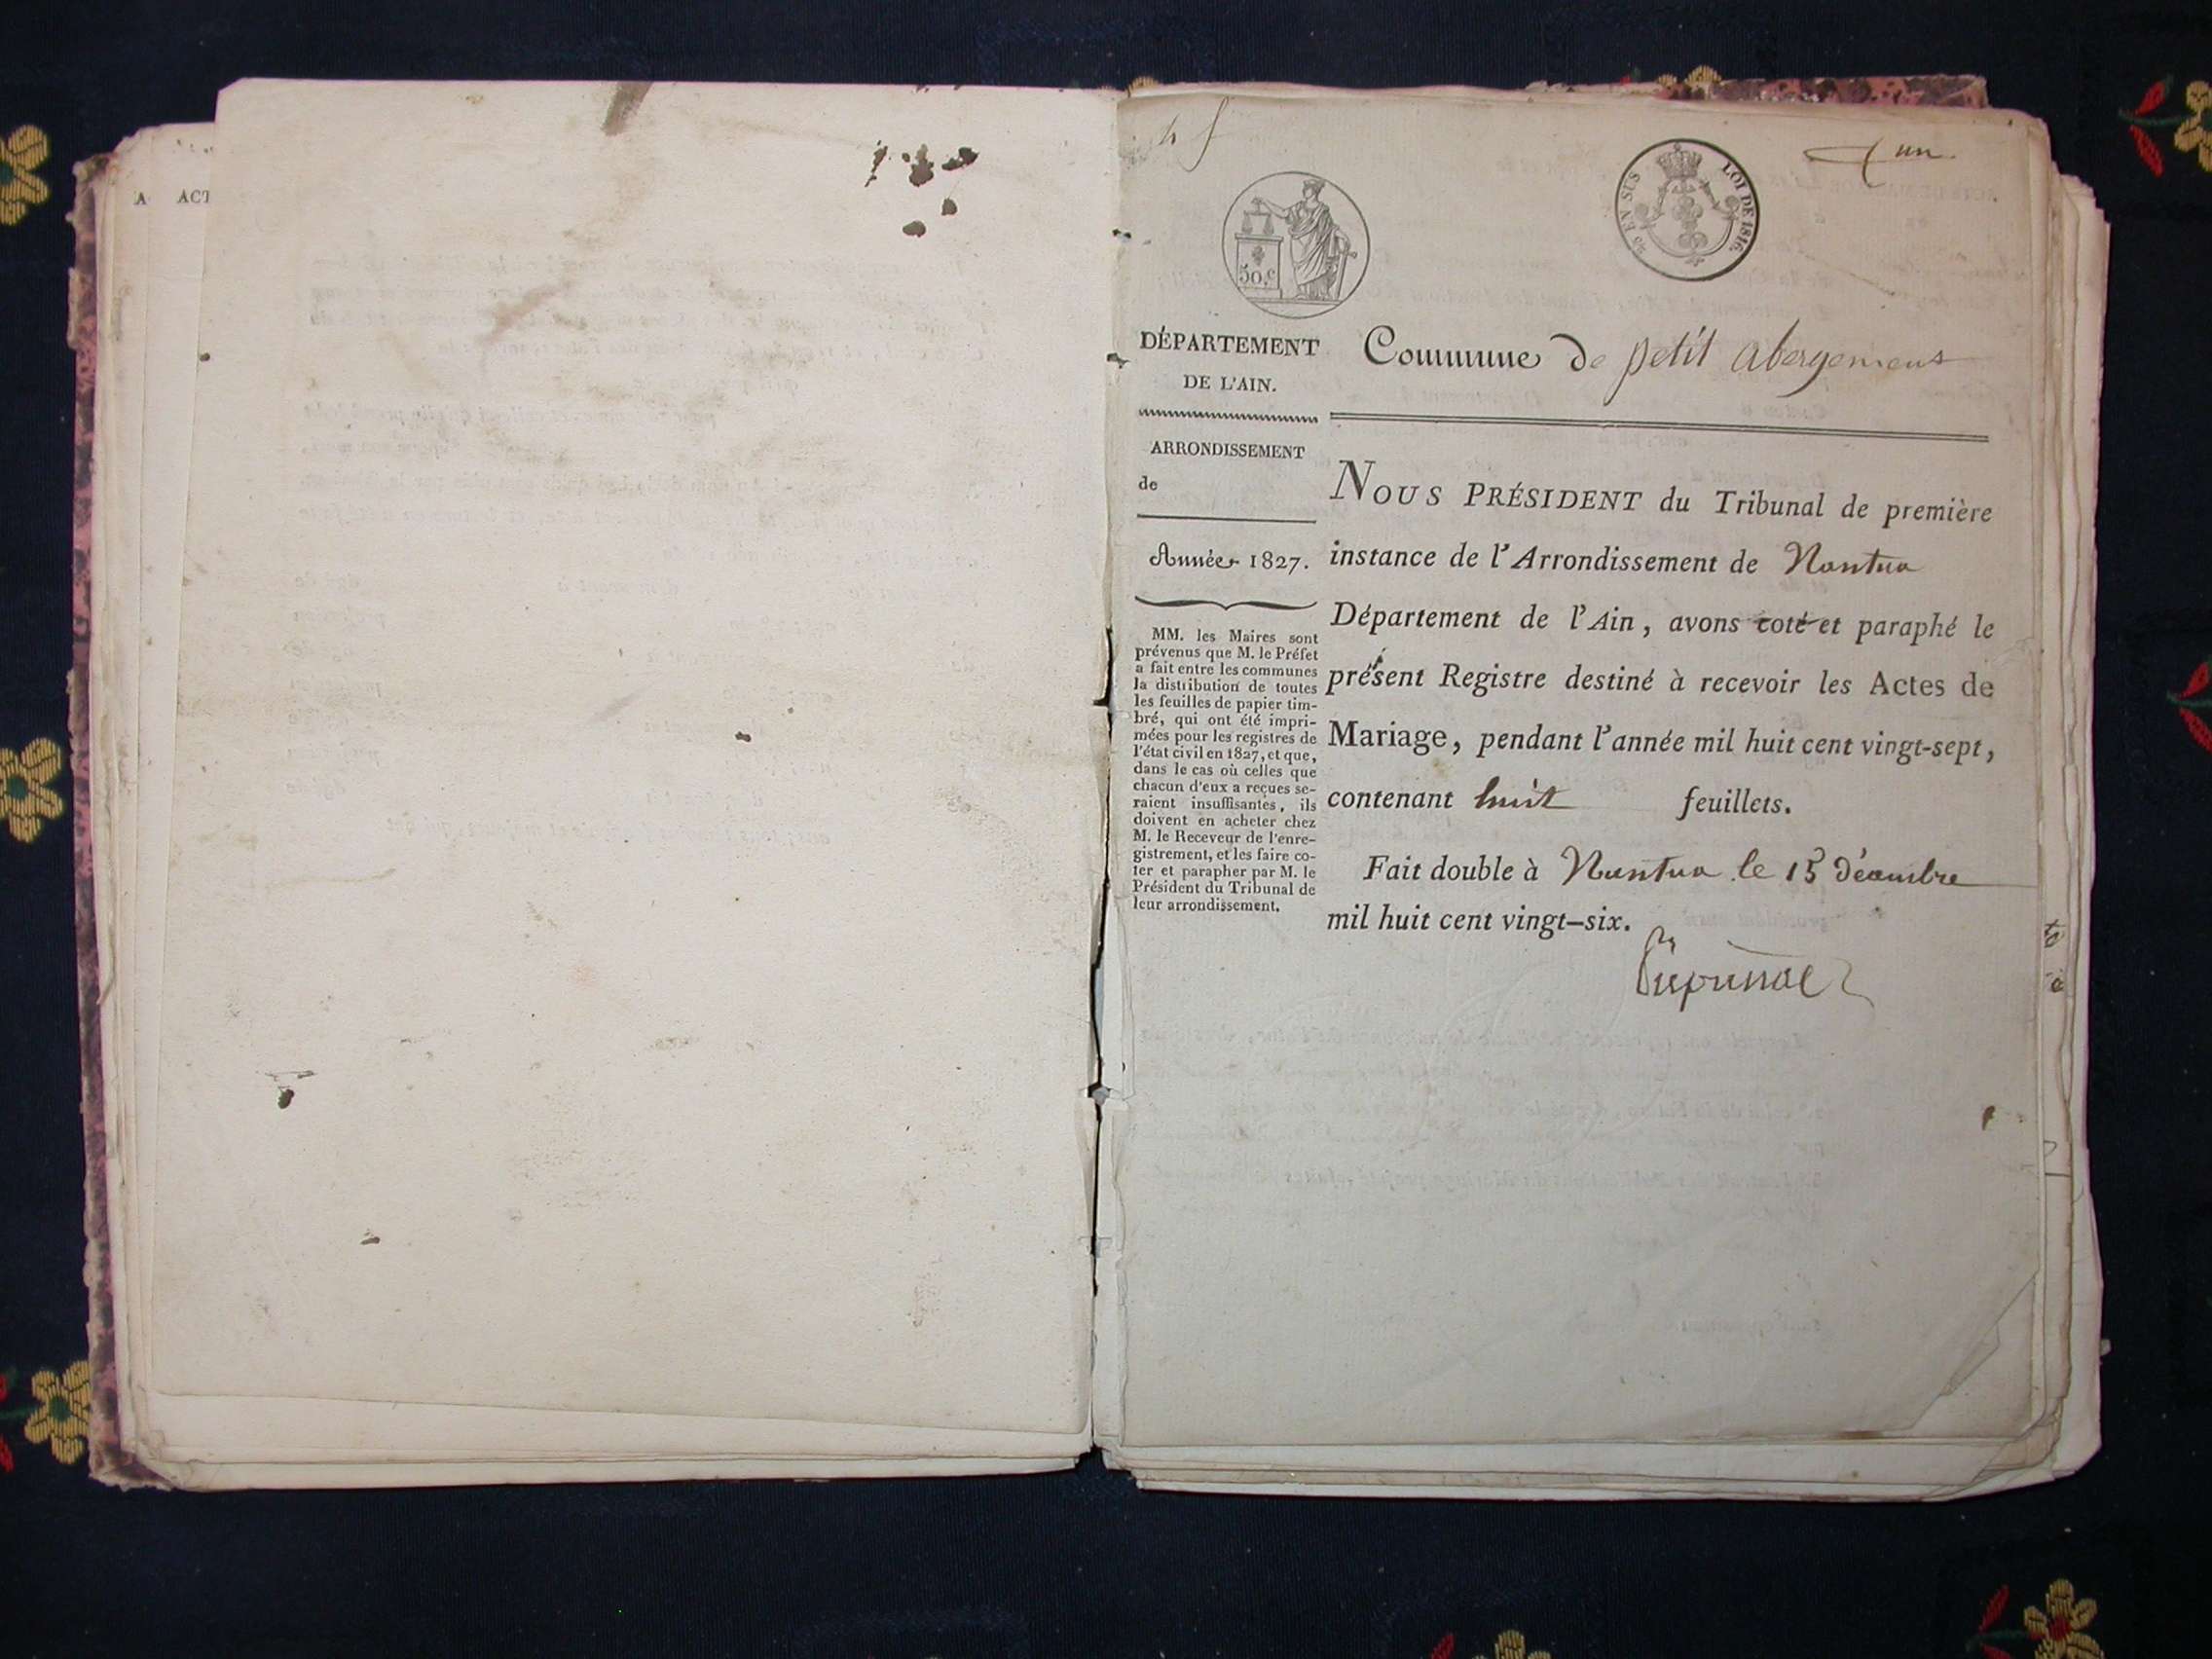 A ACT
un
50 C
EN SUS LOI DE 1816.
DÉPARTEMENT
DE L'AIN.
ARRONDISSEMENT
de
Année 1827.
MM. les Maires sont
prévenus que M. le Préfet
a fait entre les communes
la distribution de toutes
les feuilles de papier tim-
bré, qui ont été impri-
mées pour les registres de
l'état civil en 1827, et que,
dans le cas où celles que
chacun d'eux a reçues se-
raient insuffisantes, ils
doivent en acheter chez
M. le Receveur de l'enre-
gistrement, et les faire co-
ter et parapher par M. le
Président du Tribunal de
leur arrondissement.
Commune de petit abergement
NOUS PRÉSIDENT du Tribunal de première
instance de l'Arrondissement de Nantua
Département de l'Ain, avons coté et paraphé le
présent Registre destiné à recevoir les Actes de
Mariage, pendant l'année mil huit cent vingt-sept,
contenant huit feuillets.
Fait double à Nantua le 15 Décembre
mil huit cent vingt-six.